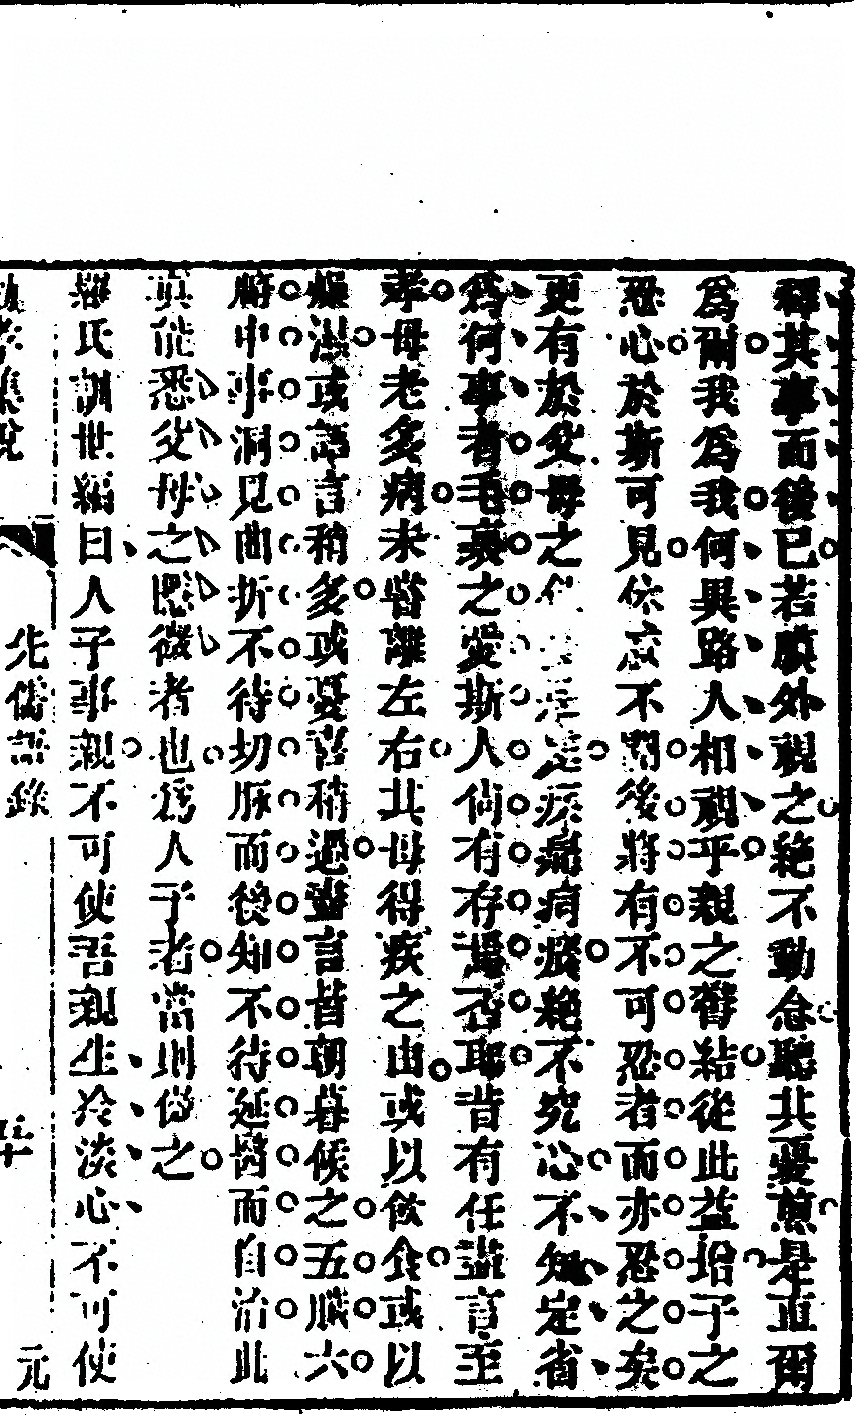 釋其事而後已若膜外視之絶不動念聽其憂煎是直爾
爲爾我爲我何異路人相視乎親之鬱結從此益増子之
忍心於斯可見休忘不問後將有不可忍者而亦忍之矣
更有於父母之疾痛疴癢絶不究心不知定省
爲何事者毛裏之愛斯人尙有存焉否耶昔有任盡言至
孝母老多病未嘗離左右其母得疾之由或以飮食或以
燥濕或語言稍多或憂喜稍過盡言皆朝暮候之五臟六
腑中事洞見曲折不待切脈而後知不待延醫而自治此
眞能悉父母之隱微者也爲人子者當則傚之
羅氏訓世編曰人子事親不可使吾親生冷淡心不可使
先儒語錄
元